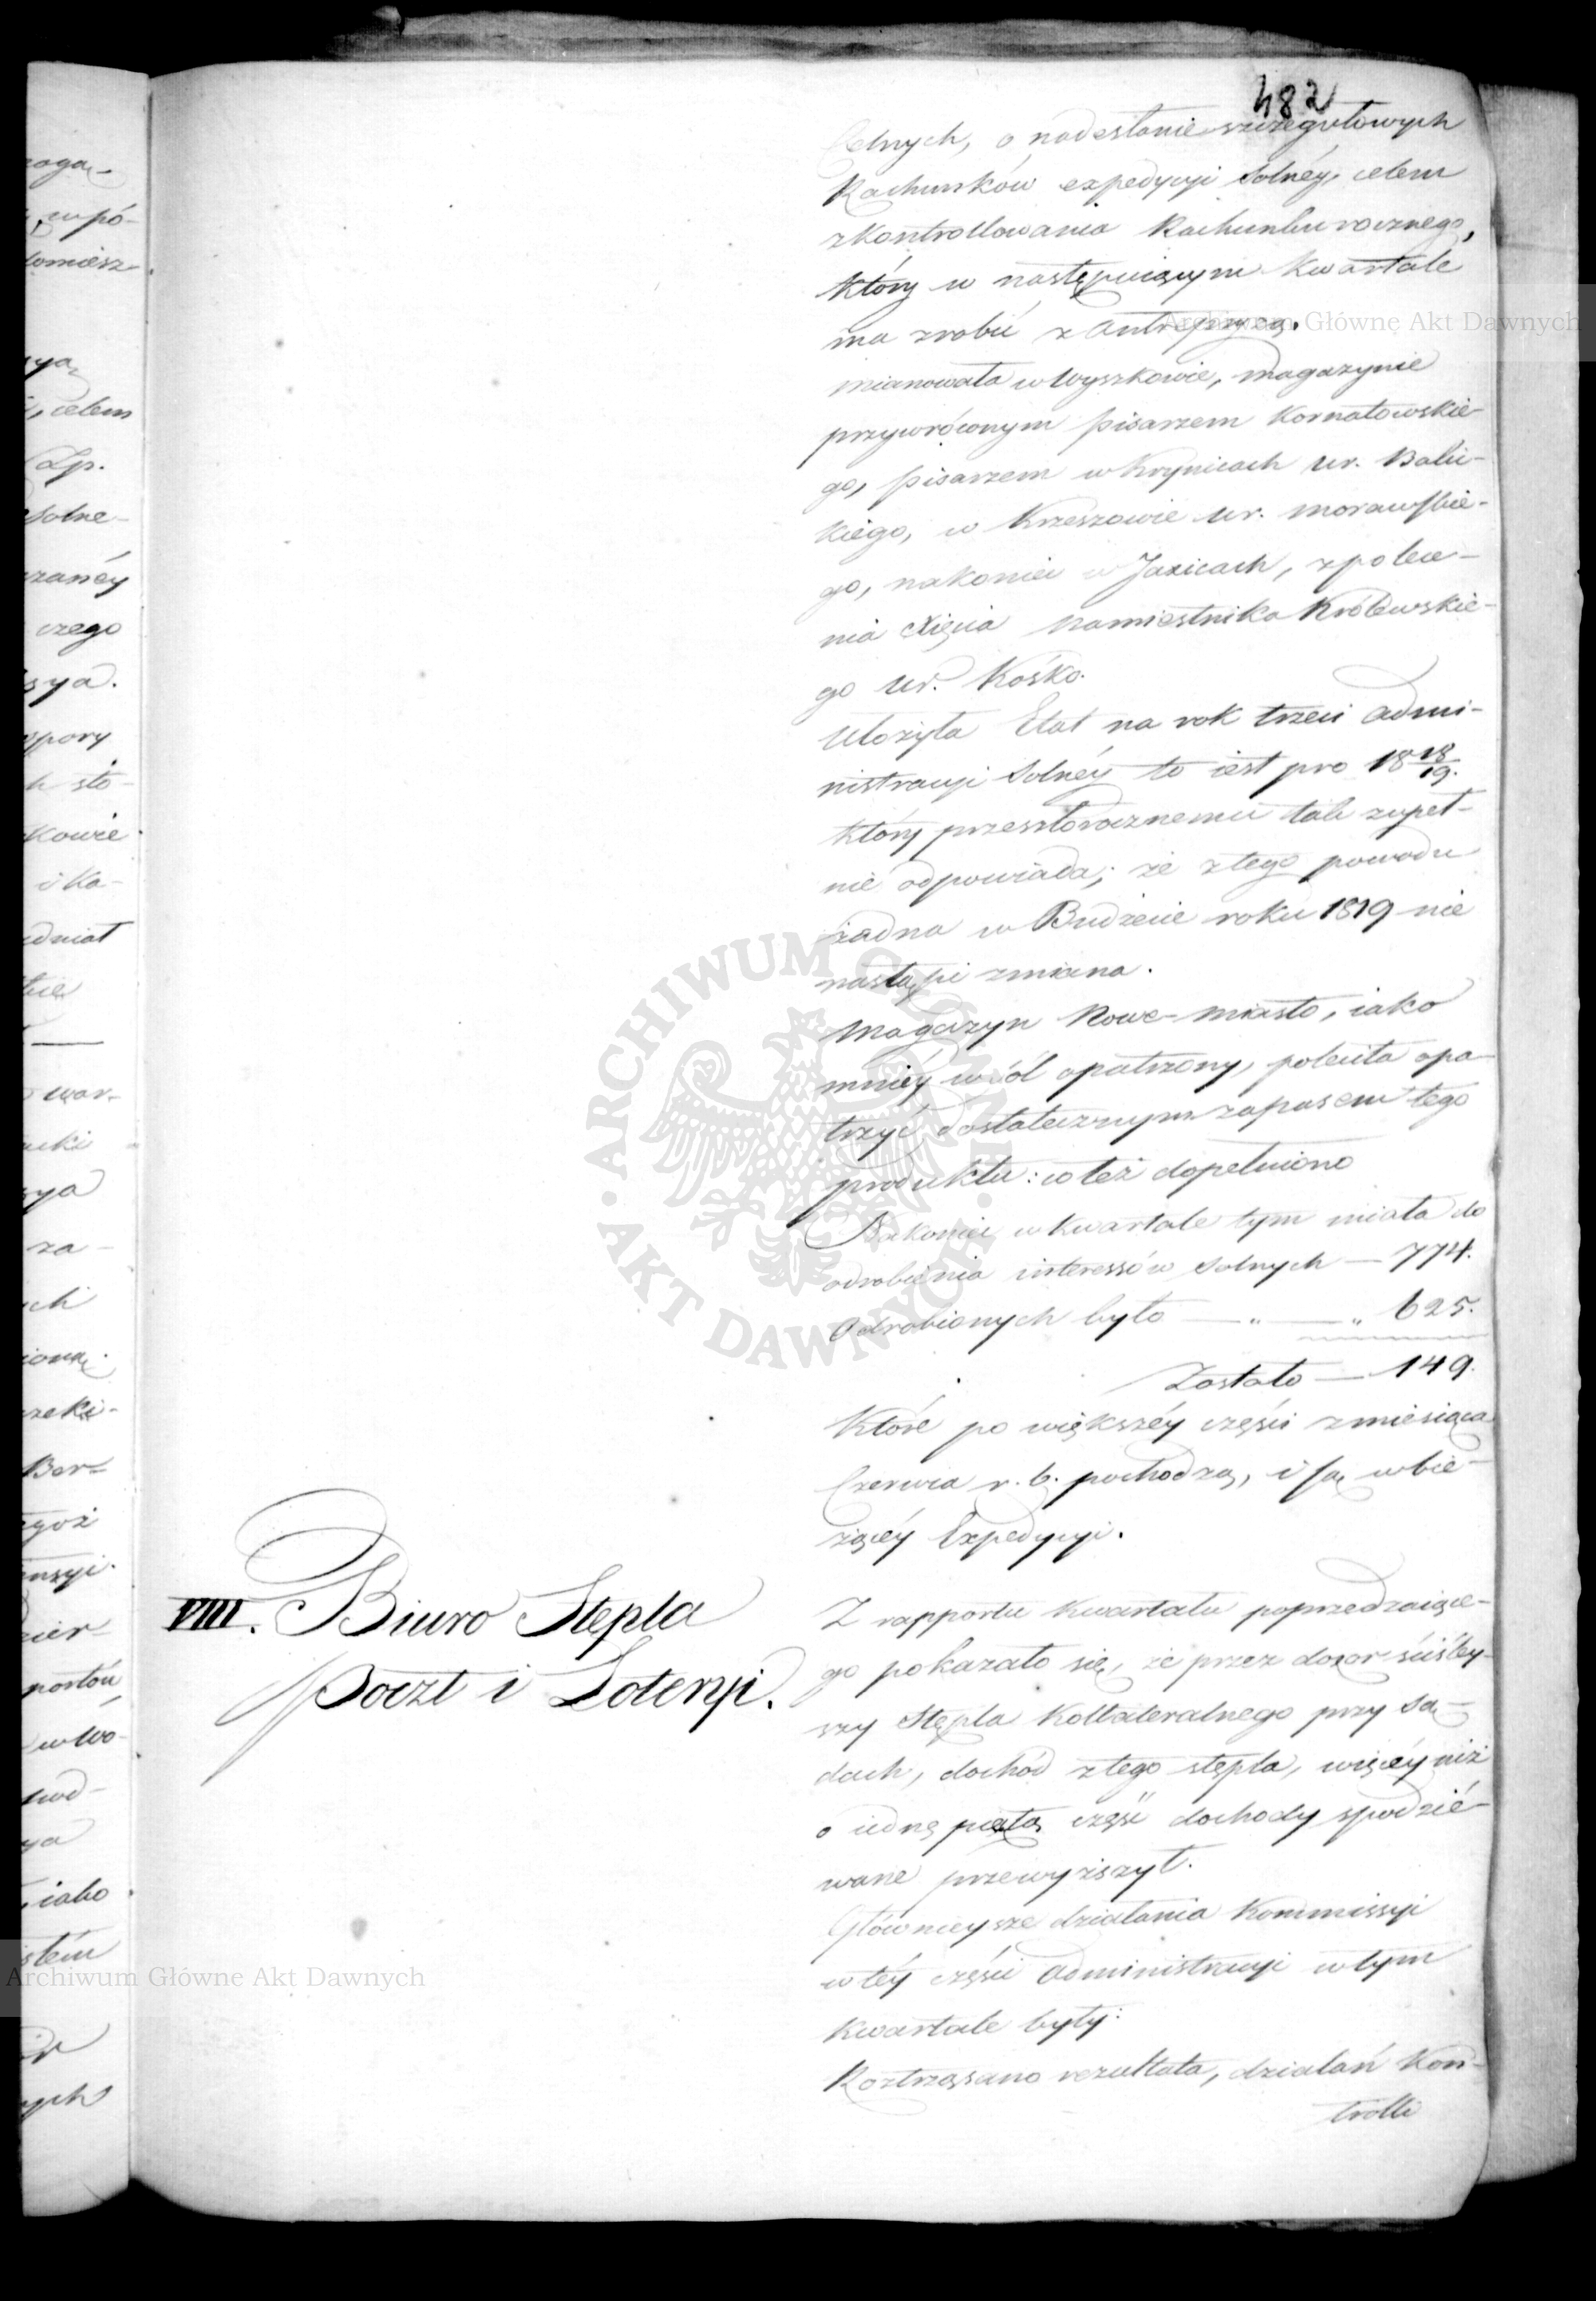 482
Celnych, o nadesłanie szczegułowych
Rachunków expedycyi Solnéy, celem
zkontrollowania Rachunku rocznego,
który w następuiącym Kwartale
ma zrobić z Antrepryzą.
mianowała w Wyszkowie, magazynie
przywróconym pisarzem Kornatowskie-
go, pisarzem w Krynicach Ur.
kiego, w Krzeszowie Ur. Morawskie-
go, nakoniec w Jaxicach, z polece-
nia Xięcia Namiestnika Królewskie-
go Ur. Kośko.
Ułożyła Etat na rok trzeci admi-
nistracyi Solnéy to iest pro 18 18/19.
który przeszłorocznemu tak zupeł-
nie odpowiada; że z tego powodu
żadna w Budżecie roku 1819 nie
nastąpi zmiana.
Magazyn Nowe-Miasto, iako
mniéy w sól opatrzony, poleciła opa-
trzyć dostatecznym zapasem tego
produktu: co też dopełniono
Nakoniec w Kwartale tym miała do
odrobienia interessów Solnych — 774.
Odrobionych było — „ — „ 625.
Zostało — 149.
Które po większéy części z miesiąca
Czerwca r. b. pochodzą, i są w bie-
żącéy Expedycyi.
VIII. Biuro Stępla
Poczt i Loteryi.
Z rapportu Kwartału poprzedzaiące-
go pokazało się, że przez dozór ściśley-
szy Stępla Kollateralnego przy Są-
dach, dochód z tego stępla, więcéy niż
o iedną piątą część dochody spodzié-
wane przewyższył.
Głównieysze działania Kommissyi
w téy części administracyi w tym
Kwartale były:
Roztrząsano rezultata, działań Kon-
trolli
Archiwum Główne Akt Dawnych
ARCHIWUM GŁÓWNE · AKT DAWNYCH ·
Archiwum Główne Akt Dawnych